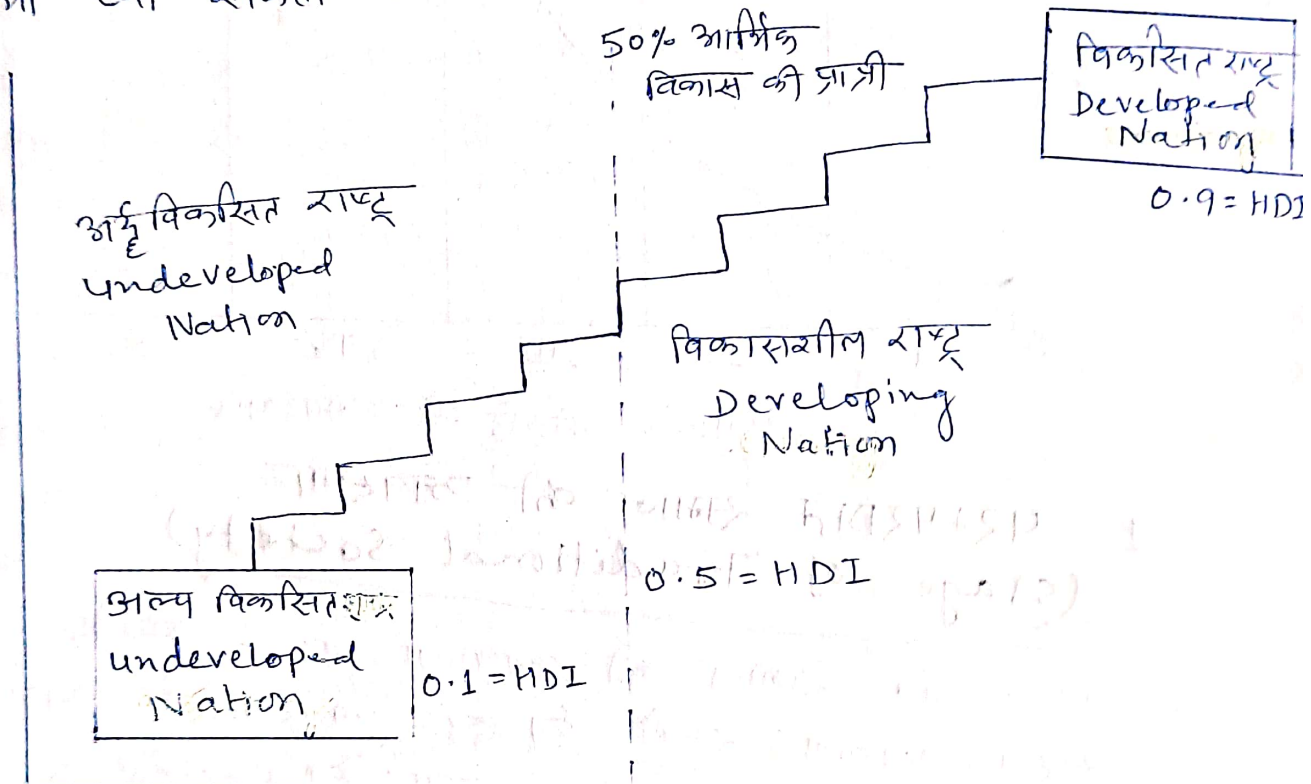 50% आर्थिक
विकास की प्राप्ती
विकसित राष्ट्र
Developed
Nation
0.9 = HDI
अर्द्ध विकसित राष्ट्र
undeveloped
Nation
विकासशील राष्ट्र
Developing
Nation
0.5 = HDI
अल्प विकसित
undeveloped
Nation
0.1 = HDI